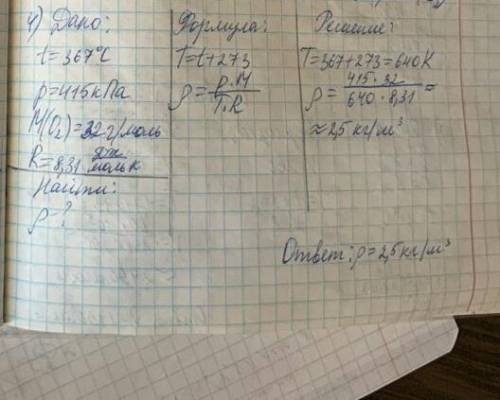 4) Дано:
t=367°C
p=415кПа
M(O₂)=32г/моль
R=8,31 дж/моль·К
Найти:
ρ-?
Формула:
T=t+273
ρ=p·M/T·R
Решение:
T=367+273=640К
ρ=415·32/640·8,31=
≈2,5 кг/м³
Ответ: ρ=2,5кг/м³